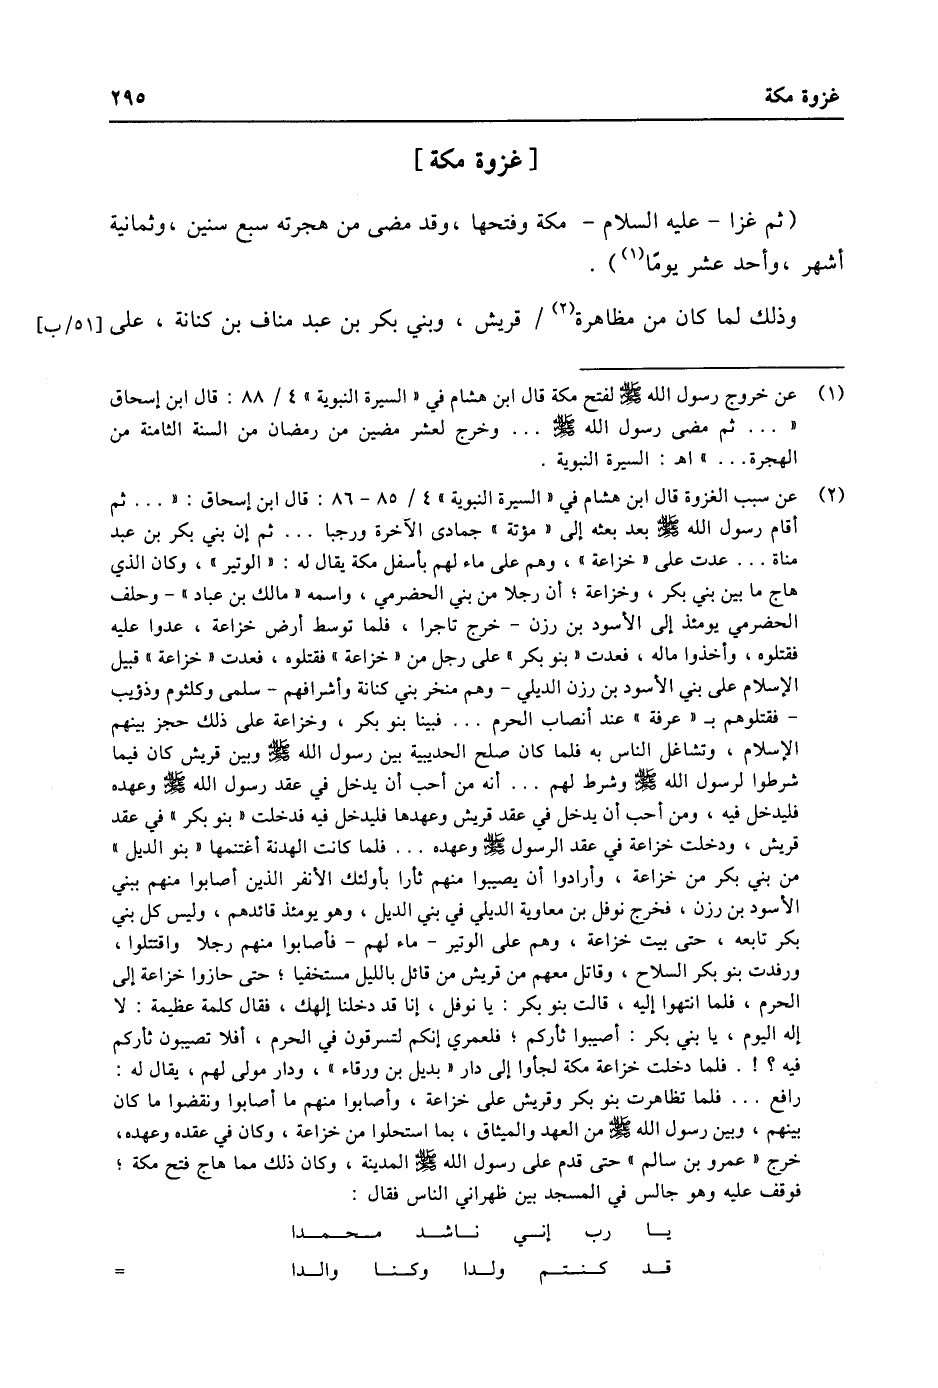 غزوة مكة ٢٩٥
[ غزوة مكة ]
( ثم غزا – عليه السلام – مكة وفتحها ، وقد مضى من هجرته سبع سنين ، وثمانية
أشهر ، وأحد عشر يومًا(١)) .
وذلك لما كان من مظاهرة(٢) / قريش ، وبني بكر بن عبد مناف بن كنانة ، على [٥١/ب]
(١) عن خروج رسول الله ﷺ لفتح مكة قال ابن هشام في « السيرة النبوية » ٤ / ٨٨ : قال ابن إسحاق
« ... ثم مضى رسول الله ﷺ ... وخرج لعشر مضين من رمضان من السنة الثامنة من
الهجرة... » اهـ : السيرة النبوية .
(٢) عن سبب الغزوة قال ابن هشام في « السيرة النبوية » ٤ / ٨٥ – ٨٦ : قال ابن إسحاق : « ... ثم
أقام رسول الله ﷺ بعد بعثه إلى « مؤتة » جمادى الآخرة ورجبا ... ثم إن بني بكر بن عبد
مناة ... عدت على « خزاعة » ، وهم على ماء لهم بأسفل مكة يقال له : « الوتير » ، وكان الذي
هاج ما بين بني بكر ، وخزاعة ؛ أن رجلا من بني الحضرمي ، واسمه « مالك بن عباد » – وحلف
الحضرمي يومئذ إلى الأسود بن رزن – خرج تاجرا ، فلما توسط أرض خزاعة ، عدوا عليه
فقتلوه ، وأخذوا ماله ، فعدت « بنو بكر » على رجل من « خزاعة » فقتلوه ، فعدت « خزاعة » قبيل
الإسلام على بني الأسود بن رزن الديلي – وهم منخر بني كنانة وأشرافهم – سلمى وكلثوم وذؤيب
– فقتلوهم بـ « عرفة » عند أنصاب الحرم ... فبينا بنو بكر ، وخزاعة على ذلك حجز بينهم
الإسلام ، وتشاغل الناس به فلما كان صلح الحديبية بين رسول الله ﷺ وبين قريش كان فيما
شرطوا لرسول الله ﷺ وشرط لهم ... أنه من أحب أن يدخل في عقد رسول الله ﷺ وعهده
فليدخل فيه ، ومن أحب أن يدخل في عقد قريش وعهدها فليدخل فيه فدخلت « بنو بكر » في عقد
قريش ، ودخلت خزاعة في عقد الرسول ﷺ وعهده ... فلما كانت الهدنة أغتنمها « بنو الديل »
من بني بكر من خزاعة ، وأرادوا أن يصيبوا منهم ثأرا بأولئك الأنفر الذين أصابوا منهم ببني
الأسود بن رزن ، فخرج نوفل بن معاوية الديلي في بني الديل ، وهو يومئذ قائدهم ، وليس كل بني
بكر تابعه ، حتى بيت خزاعة ، وهم على الوتير – ماء لهم – فأصابوا منهم رجلا واقتتلوا ،
ورفدت بنو بكر السلاح ، وقاتل معهم من قريش من قاتل بالليل مستخفيا ؛ حتى حازوا خزاعة إلى
الحرم ، فلما انتهوا إليه ، قالت بنو بكر : يا نوفل ، إنا قد دخلنا إلهك ، فقال كلمة عظيمة : لا
إله اليوم ، يا بني بكر : أصيبوا ثأركم ؛ فلعمري إنكم لتسرقون في الحرم ، أفلا تصيبون ثأركم
فيه ؟ ! . فلما دخلت خزاعة مكة لجأوا إلى دار « بديل بن ورقاء » ، ودار مولى لهم ، يقال له :
رافع ... فلما تظاهرت بنو بكر وقريش على خزاعة ، وأصابوا منهم ما أصابوا ونقضوا ما كان
بينهم ، وبين رسول الله ﷺ من العهد والميثاق ، بما استحلوا من خزاعة ، وكان في عقده وعهده،
خرج « عمرو بن سالم » حتى قدم على رسول الله ﷺ المدينة ، وكان ذلك مما هاج فتح مكة ؛
فوقف عليه وهو جالس في المسجد بين ظهراني الناس فقال :
يـا رب إنـي نـاشـد مـحـمـدا
قـد كـنـتـم ولـدا وكـنـا والـدا =